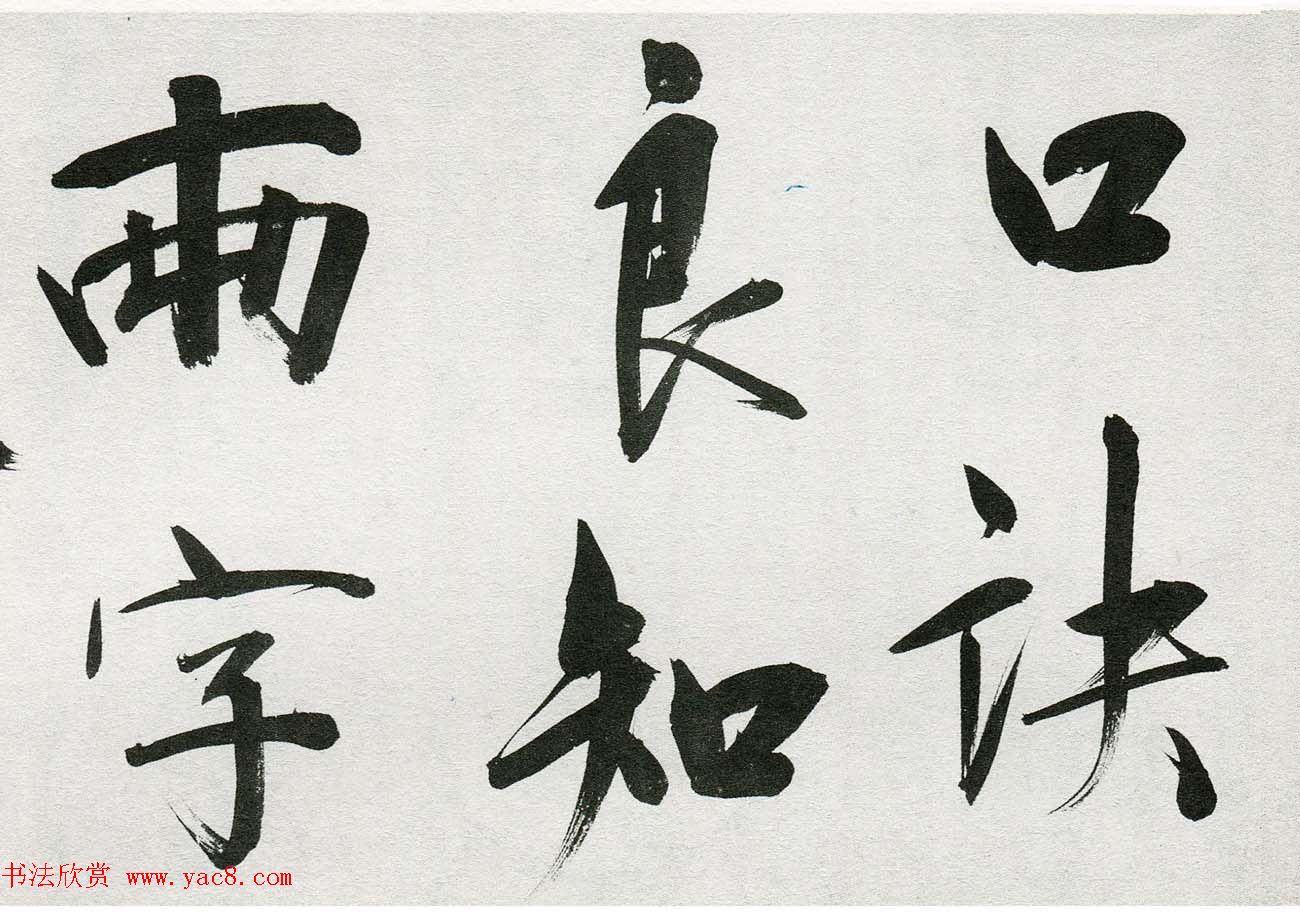 口訣
良知
兩字
书法欣赏 www.yac8.com